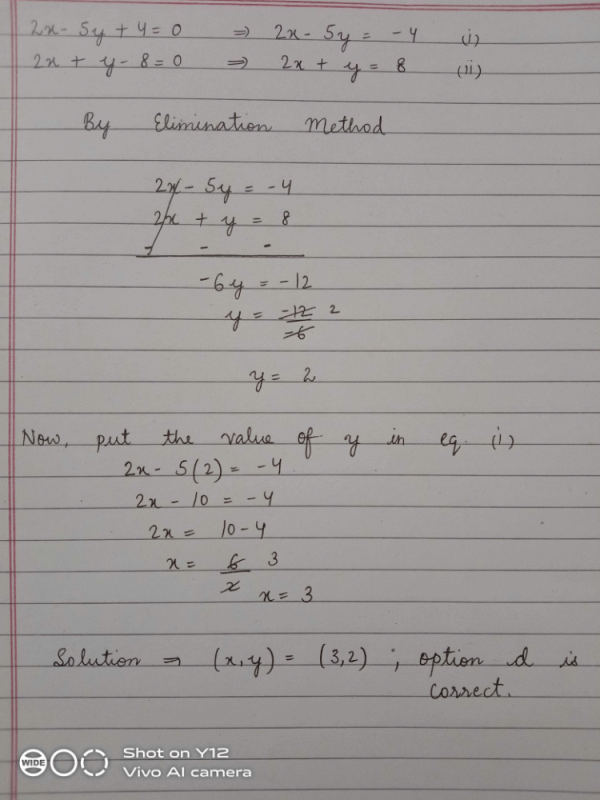 2x - 5y + 4 = 0 ⇒ 2x - 5y = -4 (i)
2x + y - 8 = 0 ⇒ 2x + y = 8 (ii)
By Elimination Method
2x - 5y = -4
2x + y = 8
- - -
-6y = -12
y = -12/-6 2
y = 2
Now, put the value of y in eq. (i)
2x - 5(2) = -4
2x - 10 = -4
2x = 10 - 4
x = 6/2 3
x = 3
Solution ⇒ (x, y) = (3,2) ; option d is
correct.
WIDE
Shot on Y12
Vivo AI camera